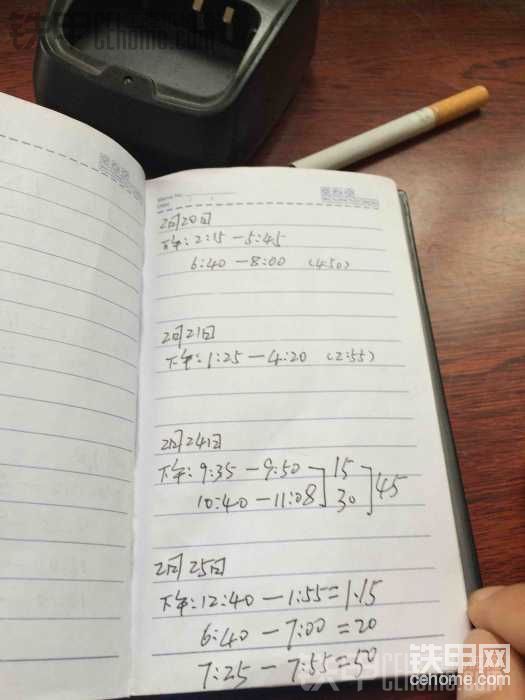 铁甲网 cehome.com
Memo No.
Date
2月20日
下午:2:15-5:45
6:40-8:00 (4:50)
2月21日
下午:1:25-4:20 (2:55)
2月24日
下午:9:35-9:50 15
10:40-11:08 30 45
2月25日
下午:12:40-1:55=1.15
6:40-7:00=20
7:25-7:55=50
铁甲网
cehome.com